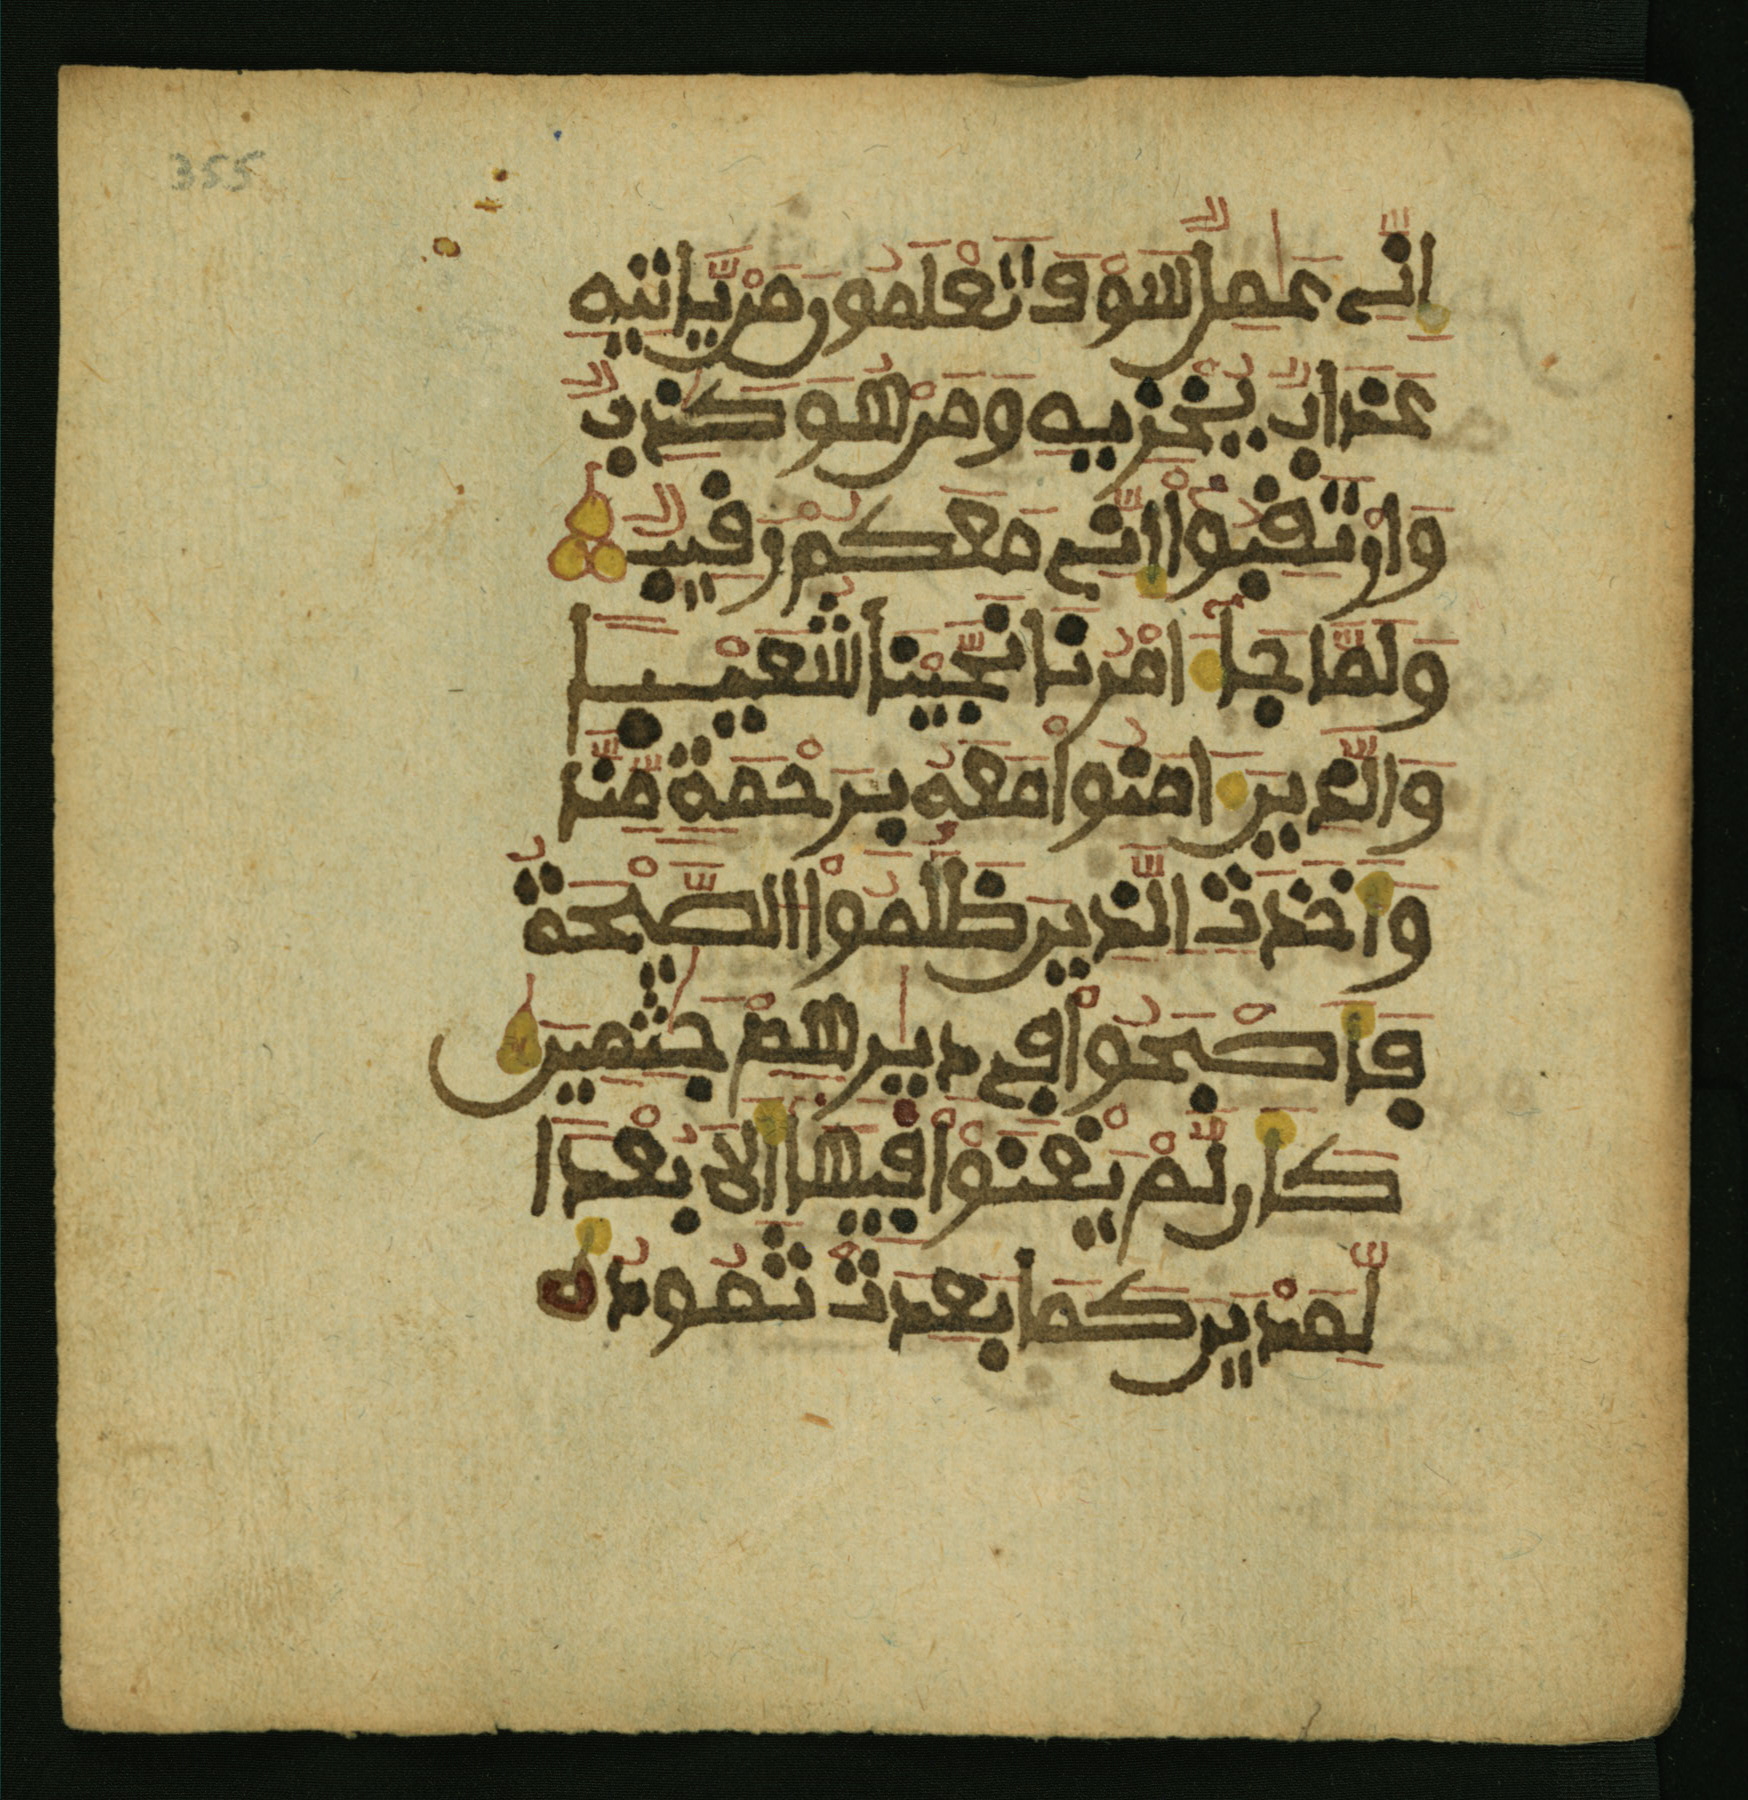 355
إِنِّے عَٰمِلٌ سَوْفَ تَعْلَمُونَ مَنْ يَّاتِيهِ
عَذَابٌ يُخْزِيهِ وَمَنْ هُوَ كَٰذِبٌ
وَارْتَقِبُوٓاْ إِنِّے مَعَكُمْ رَقِيبٌ
وَلَمَّا جَآءَ امْرُنَا نَجَّيْنَا شُعَيْباً
وَالَّذِينَ ءَامَنُواْ مَعَهُۥ بِرَحْمَةٍ مِّنَّا
وَأَخَذَتِ الَّذِينَ ظَلَمُواْ الصَّيْحَةُ
فَأَصْبَحُواْ فِے دِيٰرِهِمْ جَٰثِمِينَ
كَأَن لَّمْ يَغْنَوْاْ فِيهَآ أَلَا بُعْداً
لِّمَدْيَنَ كَمَا بَعِدَتْ ثَمُودُ